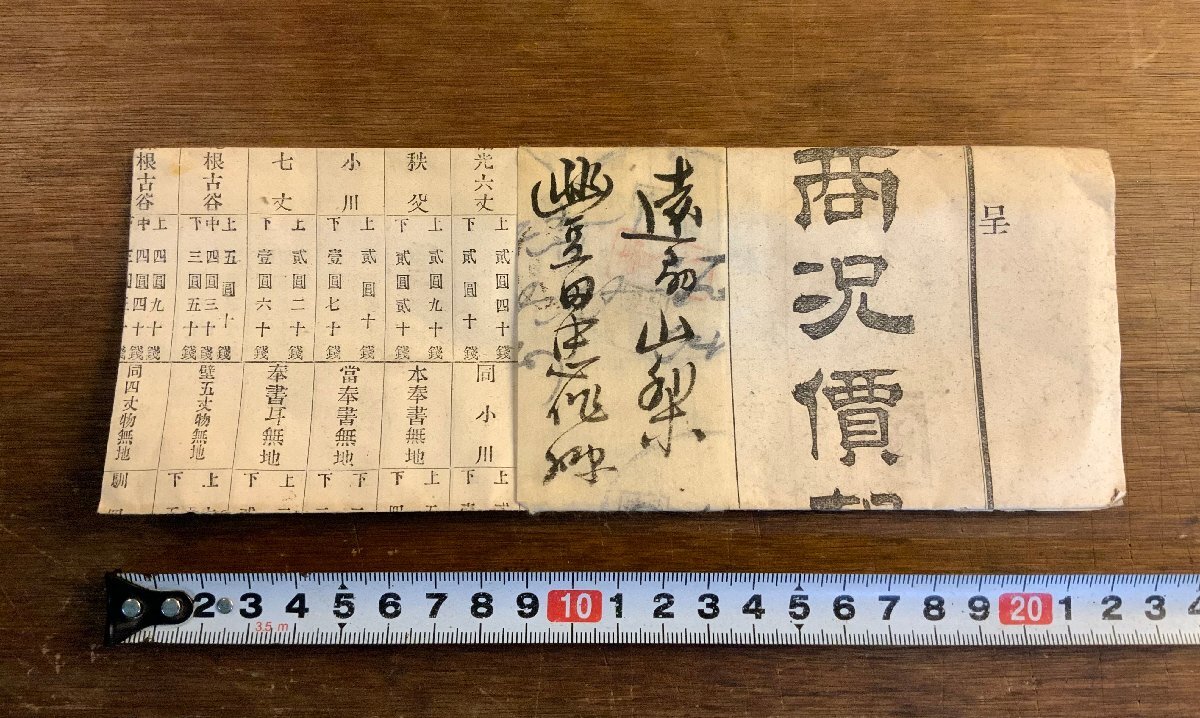 呈
商况價報
遠州山梨
豊田
光六丈
上 貳圓四十錢
下 貳圓十錢
同小川
上
下
秩父
上 貳圓九十錢
下 貳圓貳十錢
本奉書無地
上
下
小川
上 貳圓十錢
下 壹圓七十錢
當奉書無地
下
下
七丈
上 貳圓二十錢
下 壹圓六十錢
奉書耳無地
上
下
根古谷
上 五圓十錢
中 四圓三十錢
下 三圓五十錢
壁五丈物無地
上
下
根古谷
上 四圓九十錢
中 四圓四十錢
同四丈物無地
馴
2 3 4 5 6 7 8 9 10 1 2 3 4 5 6 7 8 9 20 1 2 3 4
3.5 m